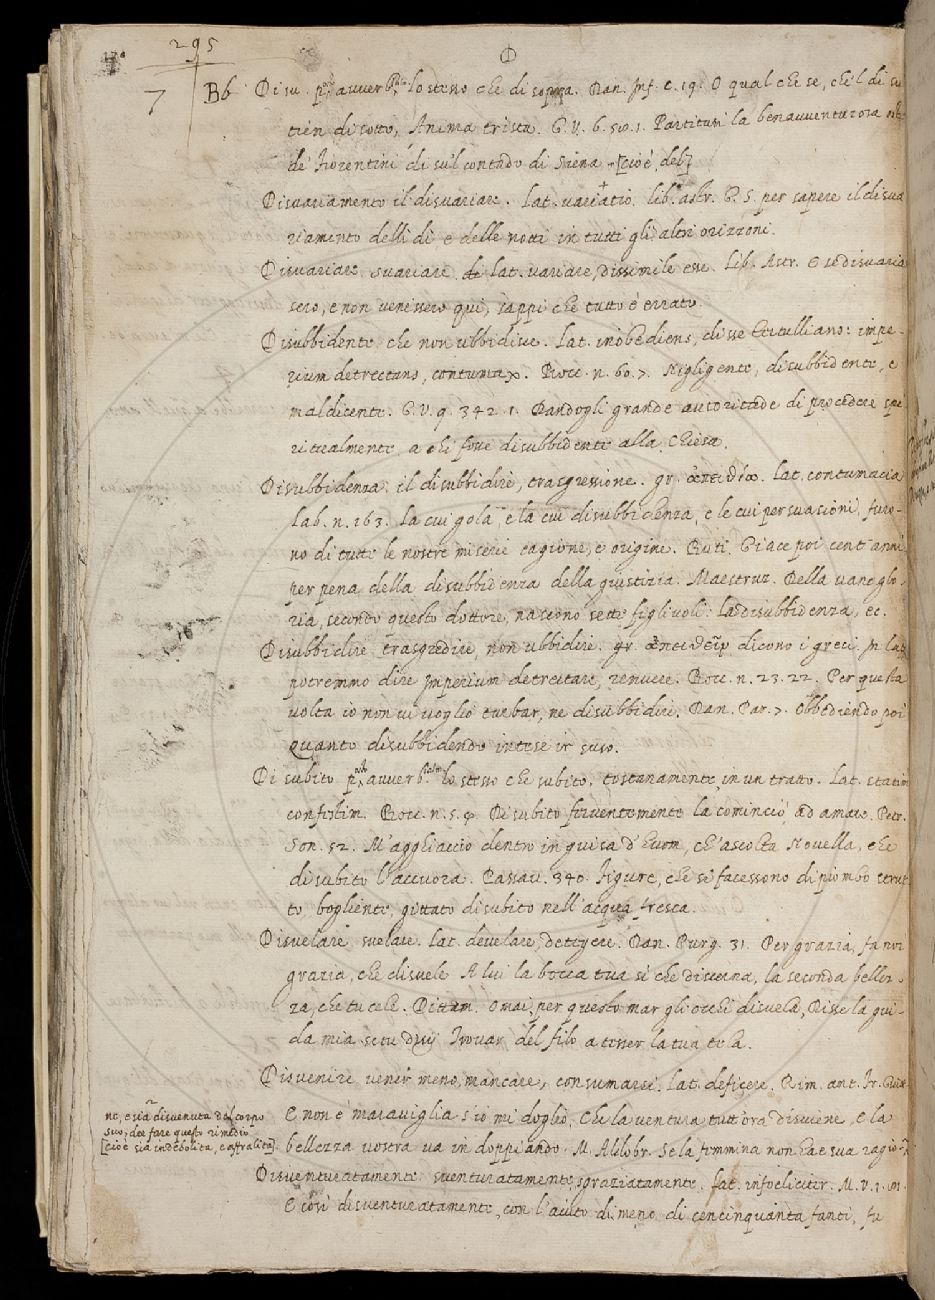 295
D
7
Bb Di su. p. avverb. lo stesso che di sopra. Dan. Inf. c. 19. O qual che se, che 'l di su
tien di sotto, Anima trista. G. V. 6. 50. 1. Partitasi la benavventurosa
de' Fiorentini di su'l contado di Siena [cioè, del]
Disvariamento il disvariare. Lat. variatio. lib. astr. G. S. per sapere il disva
riamento delli dì e delle notti in tutti gli altri orizzoni.
Disvariare svariare. Lat. variare, dissimile esse. Lib. Astr. E se disvaria
sero, e non venissero qui, sappi che tutto è errato.
Disubbidente, che non ubbidisce. Lat. inobediens, disse Tertulliano: impe-
rium detrectans, contumax. Bocc. n. 60. 7. Nigligente, disubbidente, e
maldicente. G. V. 9. 342. 1. Dandogli grande autoritade di procedere spi
ritualmente, a chi fosse disubbidente alla Chiesa.
Disubbidenza. il disubbidire, trasgressione. gr. ἀπειθία. Lat. contumacia
Lab. n. 163. La cui gola, e la cui disubbidenza, e le cui persuasioni, furo-
no di tutte le nostre miserie cagione, e origine. Buti. Giace poi cent'anni
per pena della disubbidenza della giustizia. Maestruz. Della vanaglo-
ria, secondo questo dottore, nascono sette figlivoli: la disubbidenza, ec.
Disubbidire trasgredire, non ubbidire. gr. ἀπειθεῖν dicono i greci. In lat
potremmo dire imperium detrectare, renuere. Bocc. n. 23. 22. Per questa
volta io non vi voglio turbar, ne disubbidire. Dan. Par. 7. Obbediendo poi
quanto disubbidendo intese ir suso.
Di subito p. avverb. lo stesso che subito. tostanamente, in un tratto. Lat. statim
confestim. Bocc. n. 5. 4. Di subito ferventemente la cominciò ad amare. Petr.
Son. 52. M'agghiaccio dentro in guisa d'huom, ch'ascolta Novella, che
di subito l'accuora. Passav. 340. Figure, che si facessono di piombo strut
to, bogliente, gittato di subito nell'acqua fresca.
Disvelare, svelare. Lat. develare, detegere. Dan. Purg. 31. Per grazia, fa noi
grazia, che disvele A lui la bocca tua sì che discerna, la seconda bellez-
za, che tu cele. Dittam. Omai, per questo mar gli occhi disvela, Disse la gui-
da mia se tu dij Trovar del filo a tesser la tua tela.
Disvenire venir meno, mancare, consumarsi. Lat. deficere. Rim. ant. Fr. Guit.
E non è maraviglia s'io mi doglio, Che la ventura tutt'ora disviene, e la
bellezza vostra va in doppiando. M. Aldobr. Se la femmina non ha e sua ragio-
ne, e sia disvenuta del corpo
suo, dee fare questo rimedio
[cioè sia indebolita, e affralita]
Disventuratamente. sventuratamente, sgraziatamente. Lat. infoeliciter. M. V. 1.
E così disventuratamente, con l'aiuto di meno di cencinquanta fanti, fu